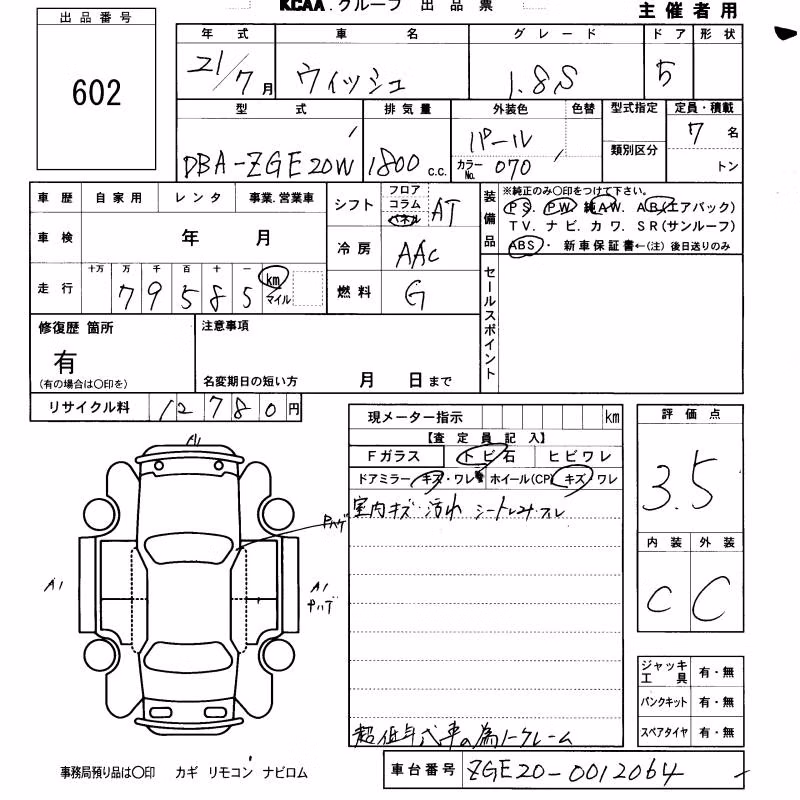 KCAA.グループ 出品票
主催者用
出品番号
602
年式 車名 グレード ドア 形状
21/7月 ウィッシュ 1.8S 5
型式 排気量 外装色 色替 型式指定 定員・積載
DBA-ZGE20W 1800 c.c. パール 7名
カラーNo. 070 類別区分 トン
車歴 自家用 レンタ 事業.営業車
シフト フロア コラム パネル AT
装備品 ※純正のみ○印をつけて下さい。
PS. PW. 純AW. AB(エアバック)
TV. ナビ. カワ. SR(サンルーフ)
ABS・新車保証書←(注)後日送りのみ
車検 年 月
冷房 AAC
走行 十万 万 千 百 十 一
79585 km マイル
燃料 G
セールスポイント
修復歴 箇所
有
(有の場合は○印を)
注意事項
名変期日の短い方 月 日まで
リサイクル料 12780円
現メーター指示 km
【査定員記入】
Fガラス トビ石 ヒビワレ
ドアミラー キズ・ワレ ホイール(CP) キズ/ワレ
室内キズ・汚れ シートしみ・スレ
超低年式車の為ノークレーム
評価点
3.5
内装 外装
C C
A1
Pハゲ
A1
A1
Pハゲ
ジャッキ工具 有・無
パンクキット 有・無
スペアタイヤ 有・無
事務局預り品は○印 カギ リモコン ナビロム
車台番号 ZGE20-0012064